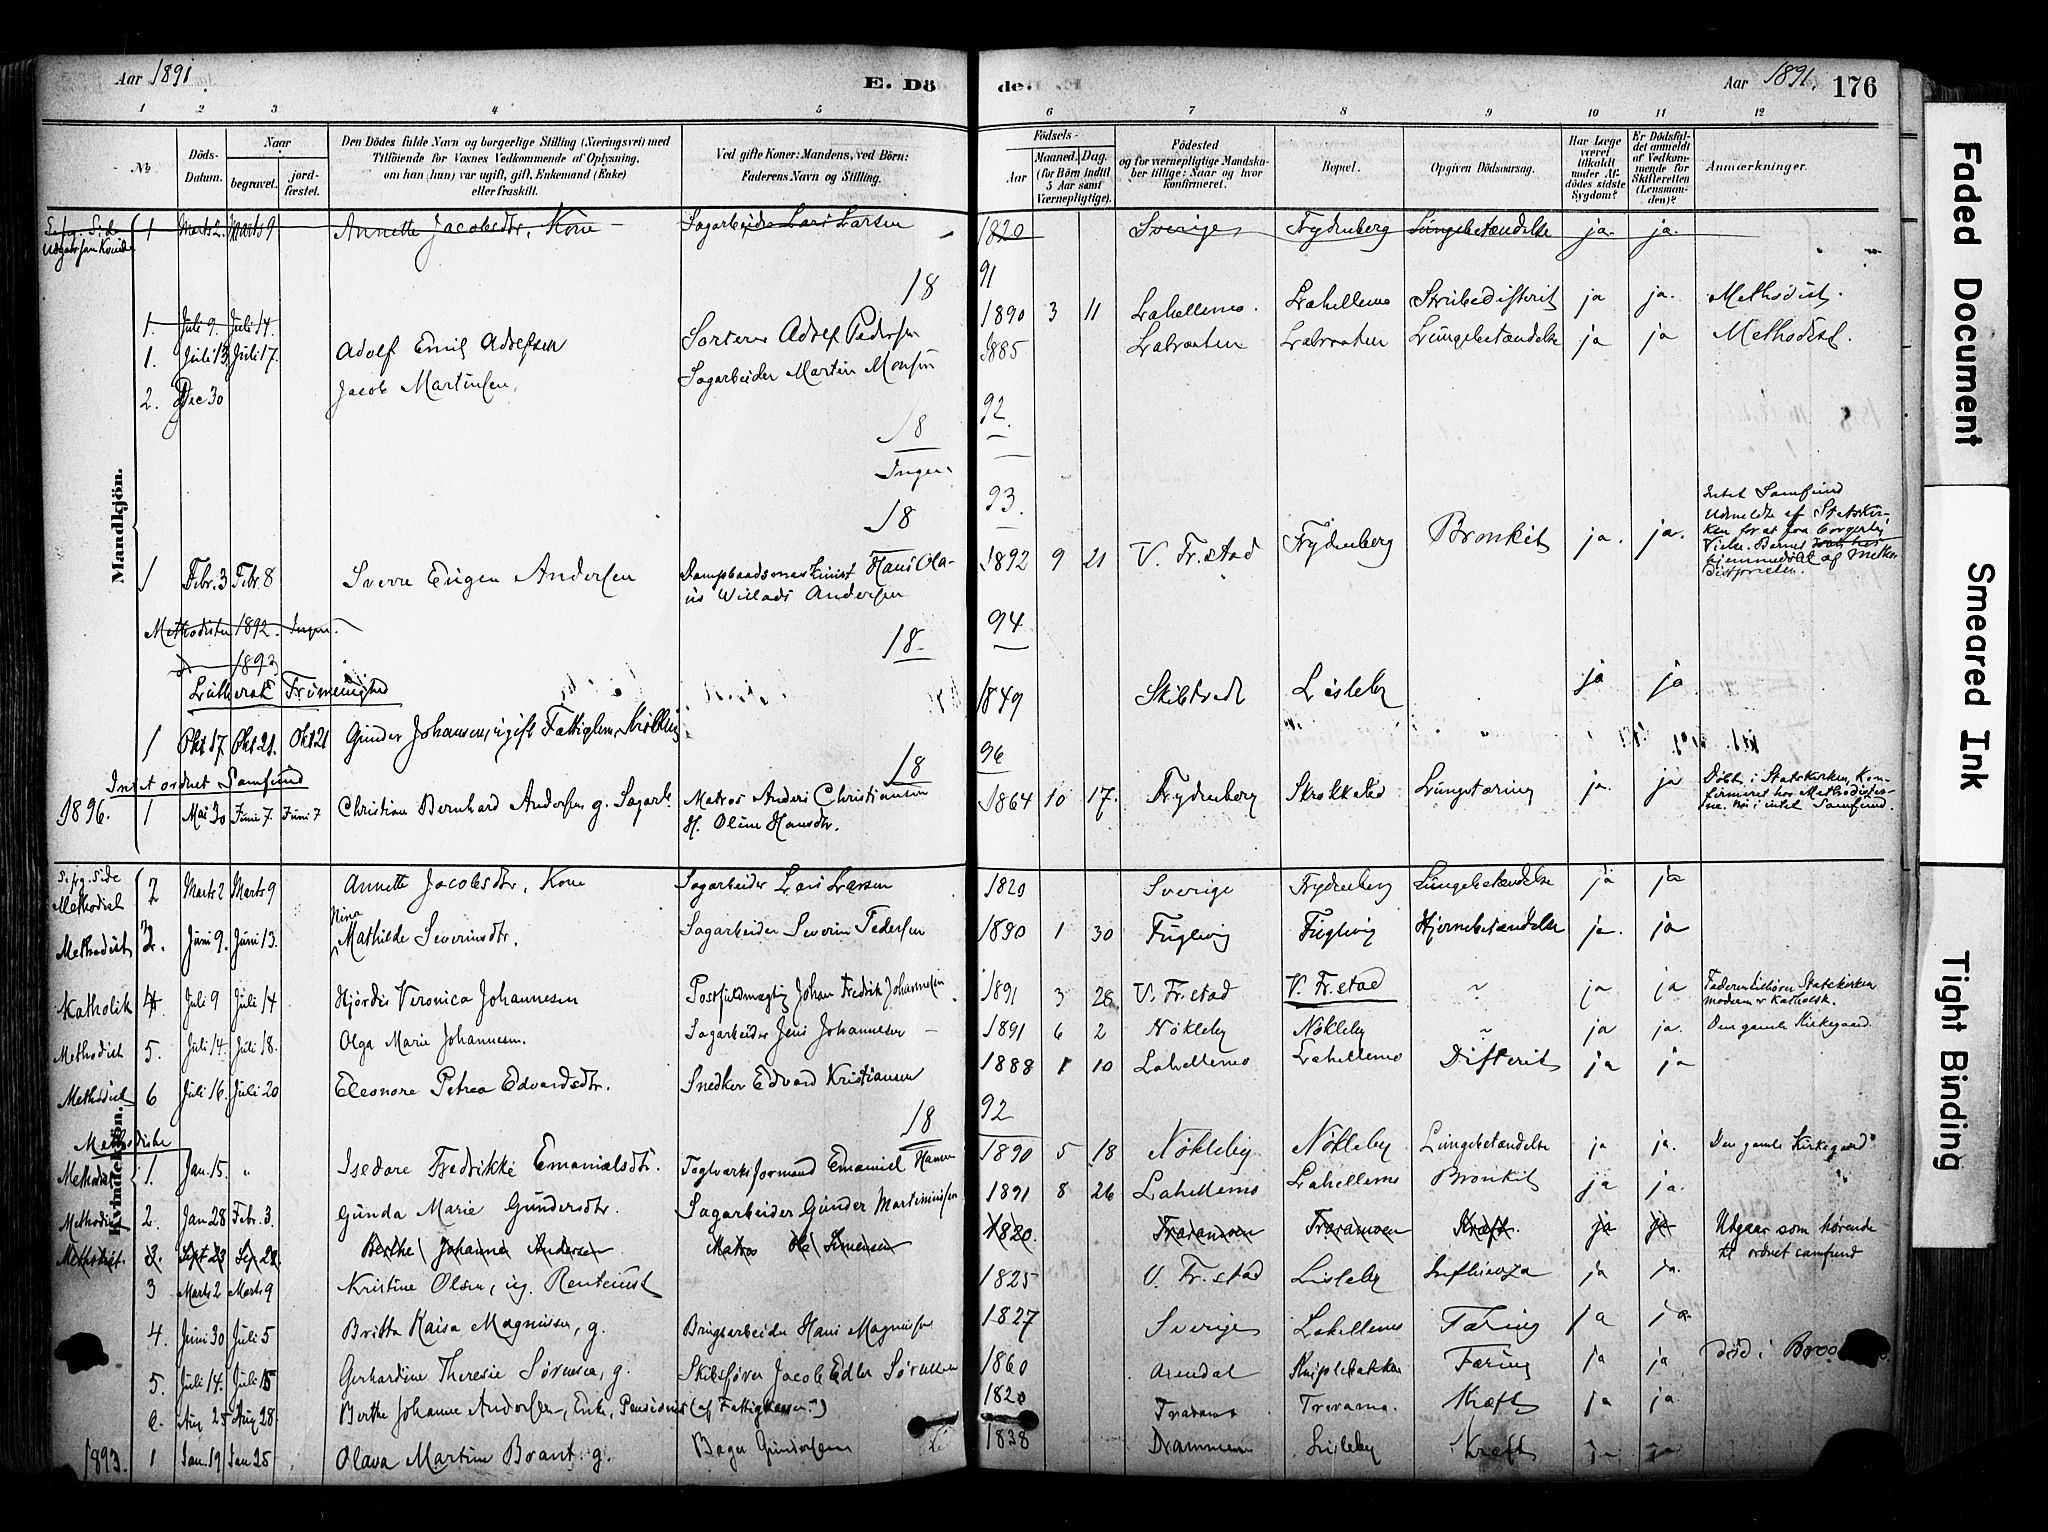 Aar 1891.
E. Dö de.
Aar 1891.
176
1 2 3 4 5 6 7 8 9 10 11 12
No.
Döds-Datum.
Naar
begravet.
jord-fæstet.
Den Dödes fulde Navn og borgerlige Stilling (Næringsvei) med
Tilföiende for Voxnes Vedkommende af Oplysning,
om han (hun) var ugift, gift, Enkemand (Enke)
eller fraskilt.
Ved gifte Koner: Mandens, ved Börn:
Faderens Navn og Stilling.
Födsels-
Aar
Maaned. Dag.
(for Börn indtil
5 Aar samt
Værnepligtige).
Födested
og for værnepligtige Mandska-
ber tillige: Naar og hvor
konfirmeret.
Bopæl.
Opgiven Dödsaarsag.
Har Læge
været
tilkaldt
under Af-
dödes sidste
Sygdom?
Er Dödsfal-
det anmeldt
af Vedkom-
mende for
Skifteretten
(Lensman-
den)?
Anmærkninger.
Mandkjön.
1 Marts 2. Marts 9 Annette Jacobsdtr. Kone Sagarbeider Lars Larsen 1820 Sverige Frydenberg Lungebetændelse ja. ja.
18 91
1. Juli 9. Juli 14.
1. Juli 13 Juli 17. Adolf Emil Adolfsen Sorterer Adolf Pedersen 1890 3 11 Lahellemo. Lahellemo Strubedifterit ja ja. Methodist.
2. Dec 30 Jacob Martinsen, Sagarbeider Martin Monsen 1885 Labraaten Labraaten Lungebetændelse ja ja Methodist.
18 92.
Ingen
18 93.
1 Febr. 3 Febr. 8 Sverre Eugen Andersen Dampbaadsmaskinist Hans Ola-
us Willads Andersen 1892 9 21 V. Fr.stad Frydenberg Bronkit ja. ja.
Intet Samfund
Udmeldte af Statskir-
ken for at faa borgerlig
Vielse. Barnet
hjemmedöbt af Metho-
distpresten.
Methodister 1892. Ingen.
1893
18 94
Luthersk Frimenighed
1 Okt 17 Okt 21. Okt 21 Gunder Johansen, ugift Fattiglem, 1849 Skibtvedt Lisleby ja ja
18 96
Intet ordnet Samfund
1896. 1 Mai 30 Juni 7. Juni 7 Christian Bernhard Andersen g. Sagarb. Matros Anders Christiansen
H. Oline Hansdtr. 1864 10 17. Frydenberg Skrokkelød Lungetæring ja. ja
Döbt i Statskirken, Kon-
firmeret hos Methodister-
ne. Nu i intet Samfund.
Kvindekjön.
Methodist 2 Marts 2 Marts 9 Annette Jacobsdtr. Kone Sagarbeider Lars Larsen 1820 Sverige Frydenberg Lungebetændelse ja ja
Methodist 3 Juni 9. Juni 13. Nina Mathilde Severinsdtr. Sagarbeider Severin Pedersen 1890 1 30 Fuglevig Fuglevig Hjernebetændelse ja. ja
Katholik 4 Juli 9 Juli 14 Hjördis Veronica Johannesen Postfuldmægtig Johan Fredrik Johannesen 1891 3 28 V. Fr.stad V. Fr.stad " ja ja
Faderen tilhörer Statskirken
moderen er Katholsk.
Methodist 5. Juli 14. Juli 18. Olga Marie Johannesen. Sagarbeider Jens Johannesen 1891 6 2 Nökleby Nökleby " ja ja. Den gamle Kirkegaard
Methodist 6 Juli 16. Juli 20 Eleonore Petrea Edvardsdtr. Snedker Edvard Kristiansen 1888 1 10 Lahellemo Lahellemo Difterit ja ja
18 92
Methodister
Methodist 1. Jan. 15. " Isedore Fredrikke Emanuelsdtr. Teglverksformand Emanuel Hansen 1890 5 18 Nökleby Nökleby Lungebetændelse ja ja. Den gamle Kirkegaard
Methodist 2. Jan 28 Febr. 3. Gunda Marie Gundersdtr. Sagarbeider Gunder Martiniussen 1891 8 26 Lahellemo Lahellemo Bronkit ja ja. "
Methodist. 3. Sept 23 Sep 28. Berthe Johanne Andersen Matros Ole Simensen 1820. Traramoen Traramoen Kræft. ja ja
Udgaar som hörende
til ordnet samfund
3 Marts 2 Marts 9 Kristine Olsen, ug. Rentenist 1825 V. Fr.stad Lisleby Influenza ja ja.
4. Juni 30 Juli 5 Britta Kaisa Magnussen, g. Brugsarbeider Hans Magnussen 1827 Sverige Lahellemo Tæring ja ja
5. Juli 14. Juli 15 Gerhardine Theresie Sörensen, g. Skibsförer Jacob Edler Sörensen 1860 Arendal Kniplebakken Tæring ja ja död i
6. Aug 25 Aug 28. Berthe Johanne Andersen, Enke, Pensionist (af Fattigkassen) 1820 Traramo Trarama. Kræft ja ja.
1893. 1 Jan. 19 Jan 25 Olava Martine Brant. g. Gundersen 1838 Drammen Lisleby Kræft ja ja
Faded Document
Smeared Ink
Tight Binding